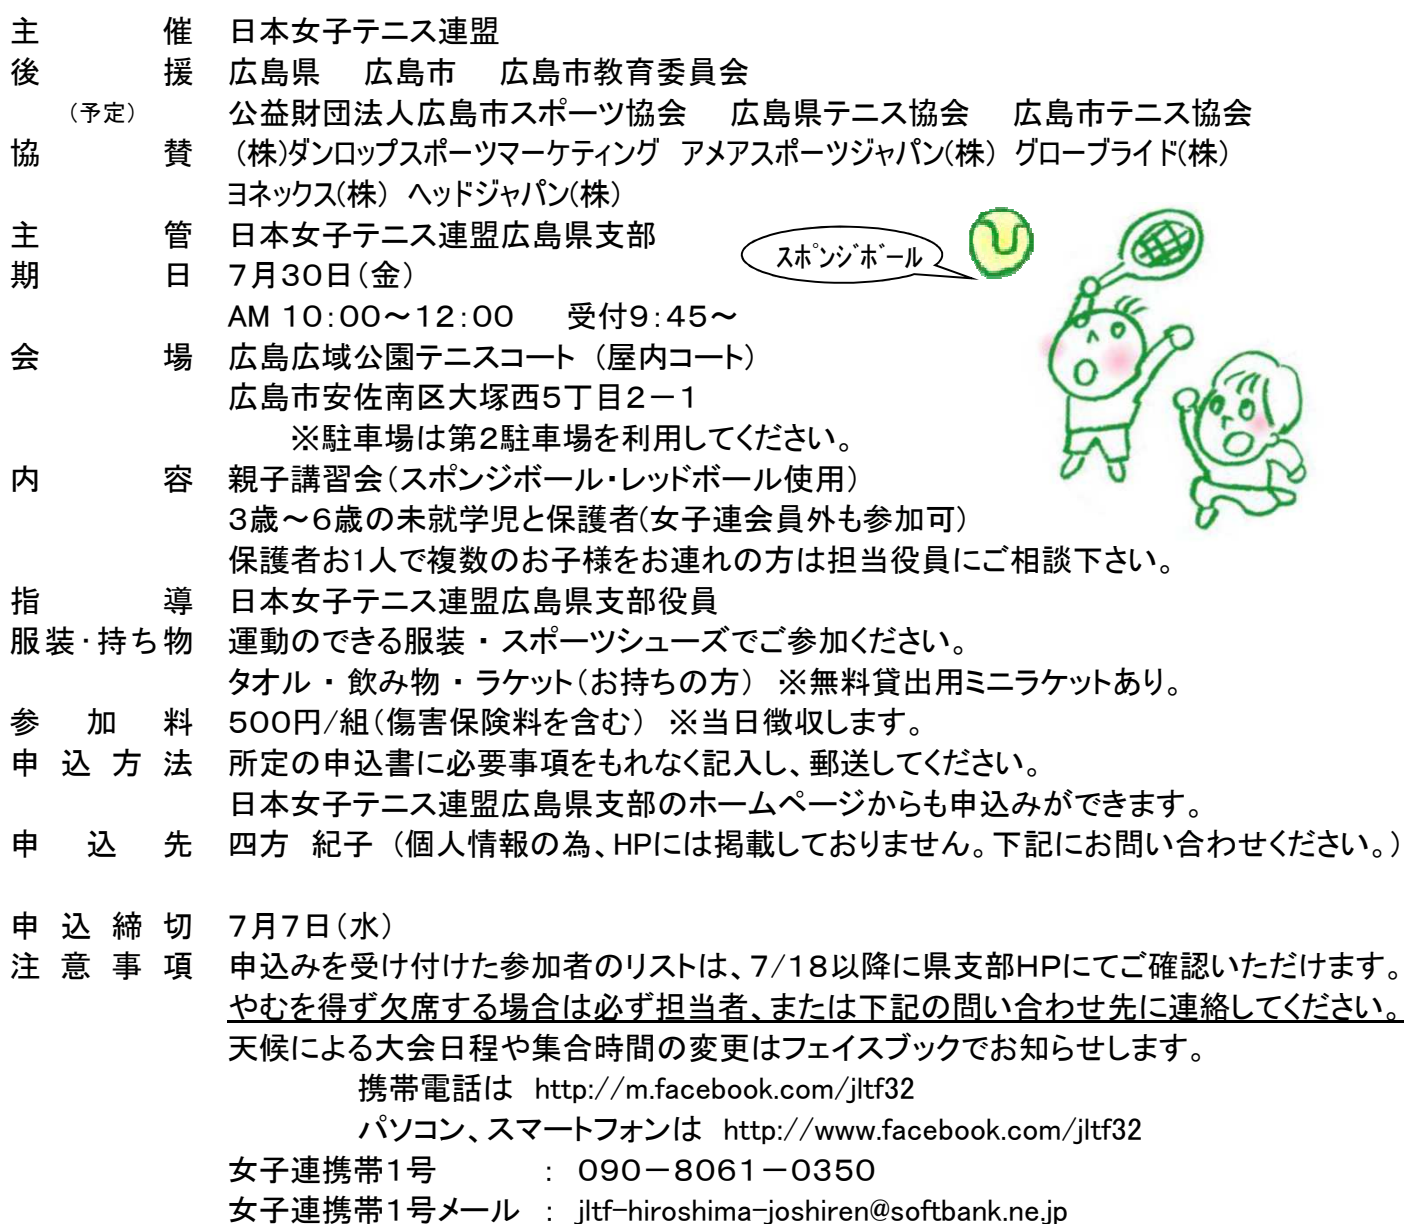 主催 日本女子テニス連盟
後援 広島県 広島市 広島市教育委員会
(予定) 公益財団法人広島市スポーツ協会 広島県テニス協会 広島市テニス協会
協賛 (株)ダンロップスポーツマーケティング アメアスポーツジャパン(株) グローブライド(株)
ヨネックス(株) ヘッドジャパン(株)
主管 日本女子テニス連盟広島県支部
スポンジボール
期日 7月30日(金)
AM 10:00~12:00 受付9:45~
会場 広島広域公園テニスコート (屋内コート)
広島市安佐南区大塚西5丁目2-1
※駐車場は第2駐車場を利用してください。
内容 親子講習会(スポンジボール・レッドボール使用)
3歳~6歳の未就学児と保護者(女子連会員外も参加可)
保護者お1人で複数のお子様をお連れの方は担当役員にご相談下さい。
指導 日本女子テニス連盟広島県支部役員
服装・持ち物 運動のできる服装 ・ スポーツシューズでご参加ください。
タオル ・ 飲み物 ・ ラケット(お持ちの方) ※無料貸出用ミニラケットあり。
参加料 500円/組(傷害保険料を含む) ※当日徴収します。
申込方法 所定の申込書に必要事項をもれなく記入し、郵送してください。
日本女子テニス連盟広島県支部のホームページからも申込みができます。
申込先 四方 紀子 (個人情報の為、HPには掲載しておりません。下記にお問い合わせください。)
申込締切 7月7日(水)
注意事項 申込みを受け付けた参加者のリストは、7/18以降に県支部HPにてご確認いただけます。
やむを得ず欠席する場合は必ず担当者、または下記の問い合わせ先に連絡してください。
天候による大会日程や集合時間の変更はフェイスブックでお知らせします。
携帯電話は http://m.facebook.com/jltf32
パソコン、スマートフォンは http://www.facebook.com/jltf32
女子連携帯1号 : 090-8061-0350
女子連携帯1号メール : jltf-hiroshima-joshiren@softbank.ne.jp